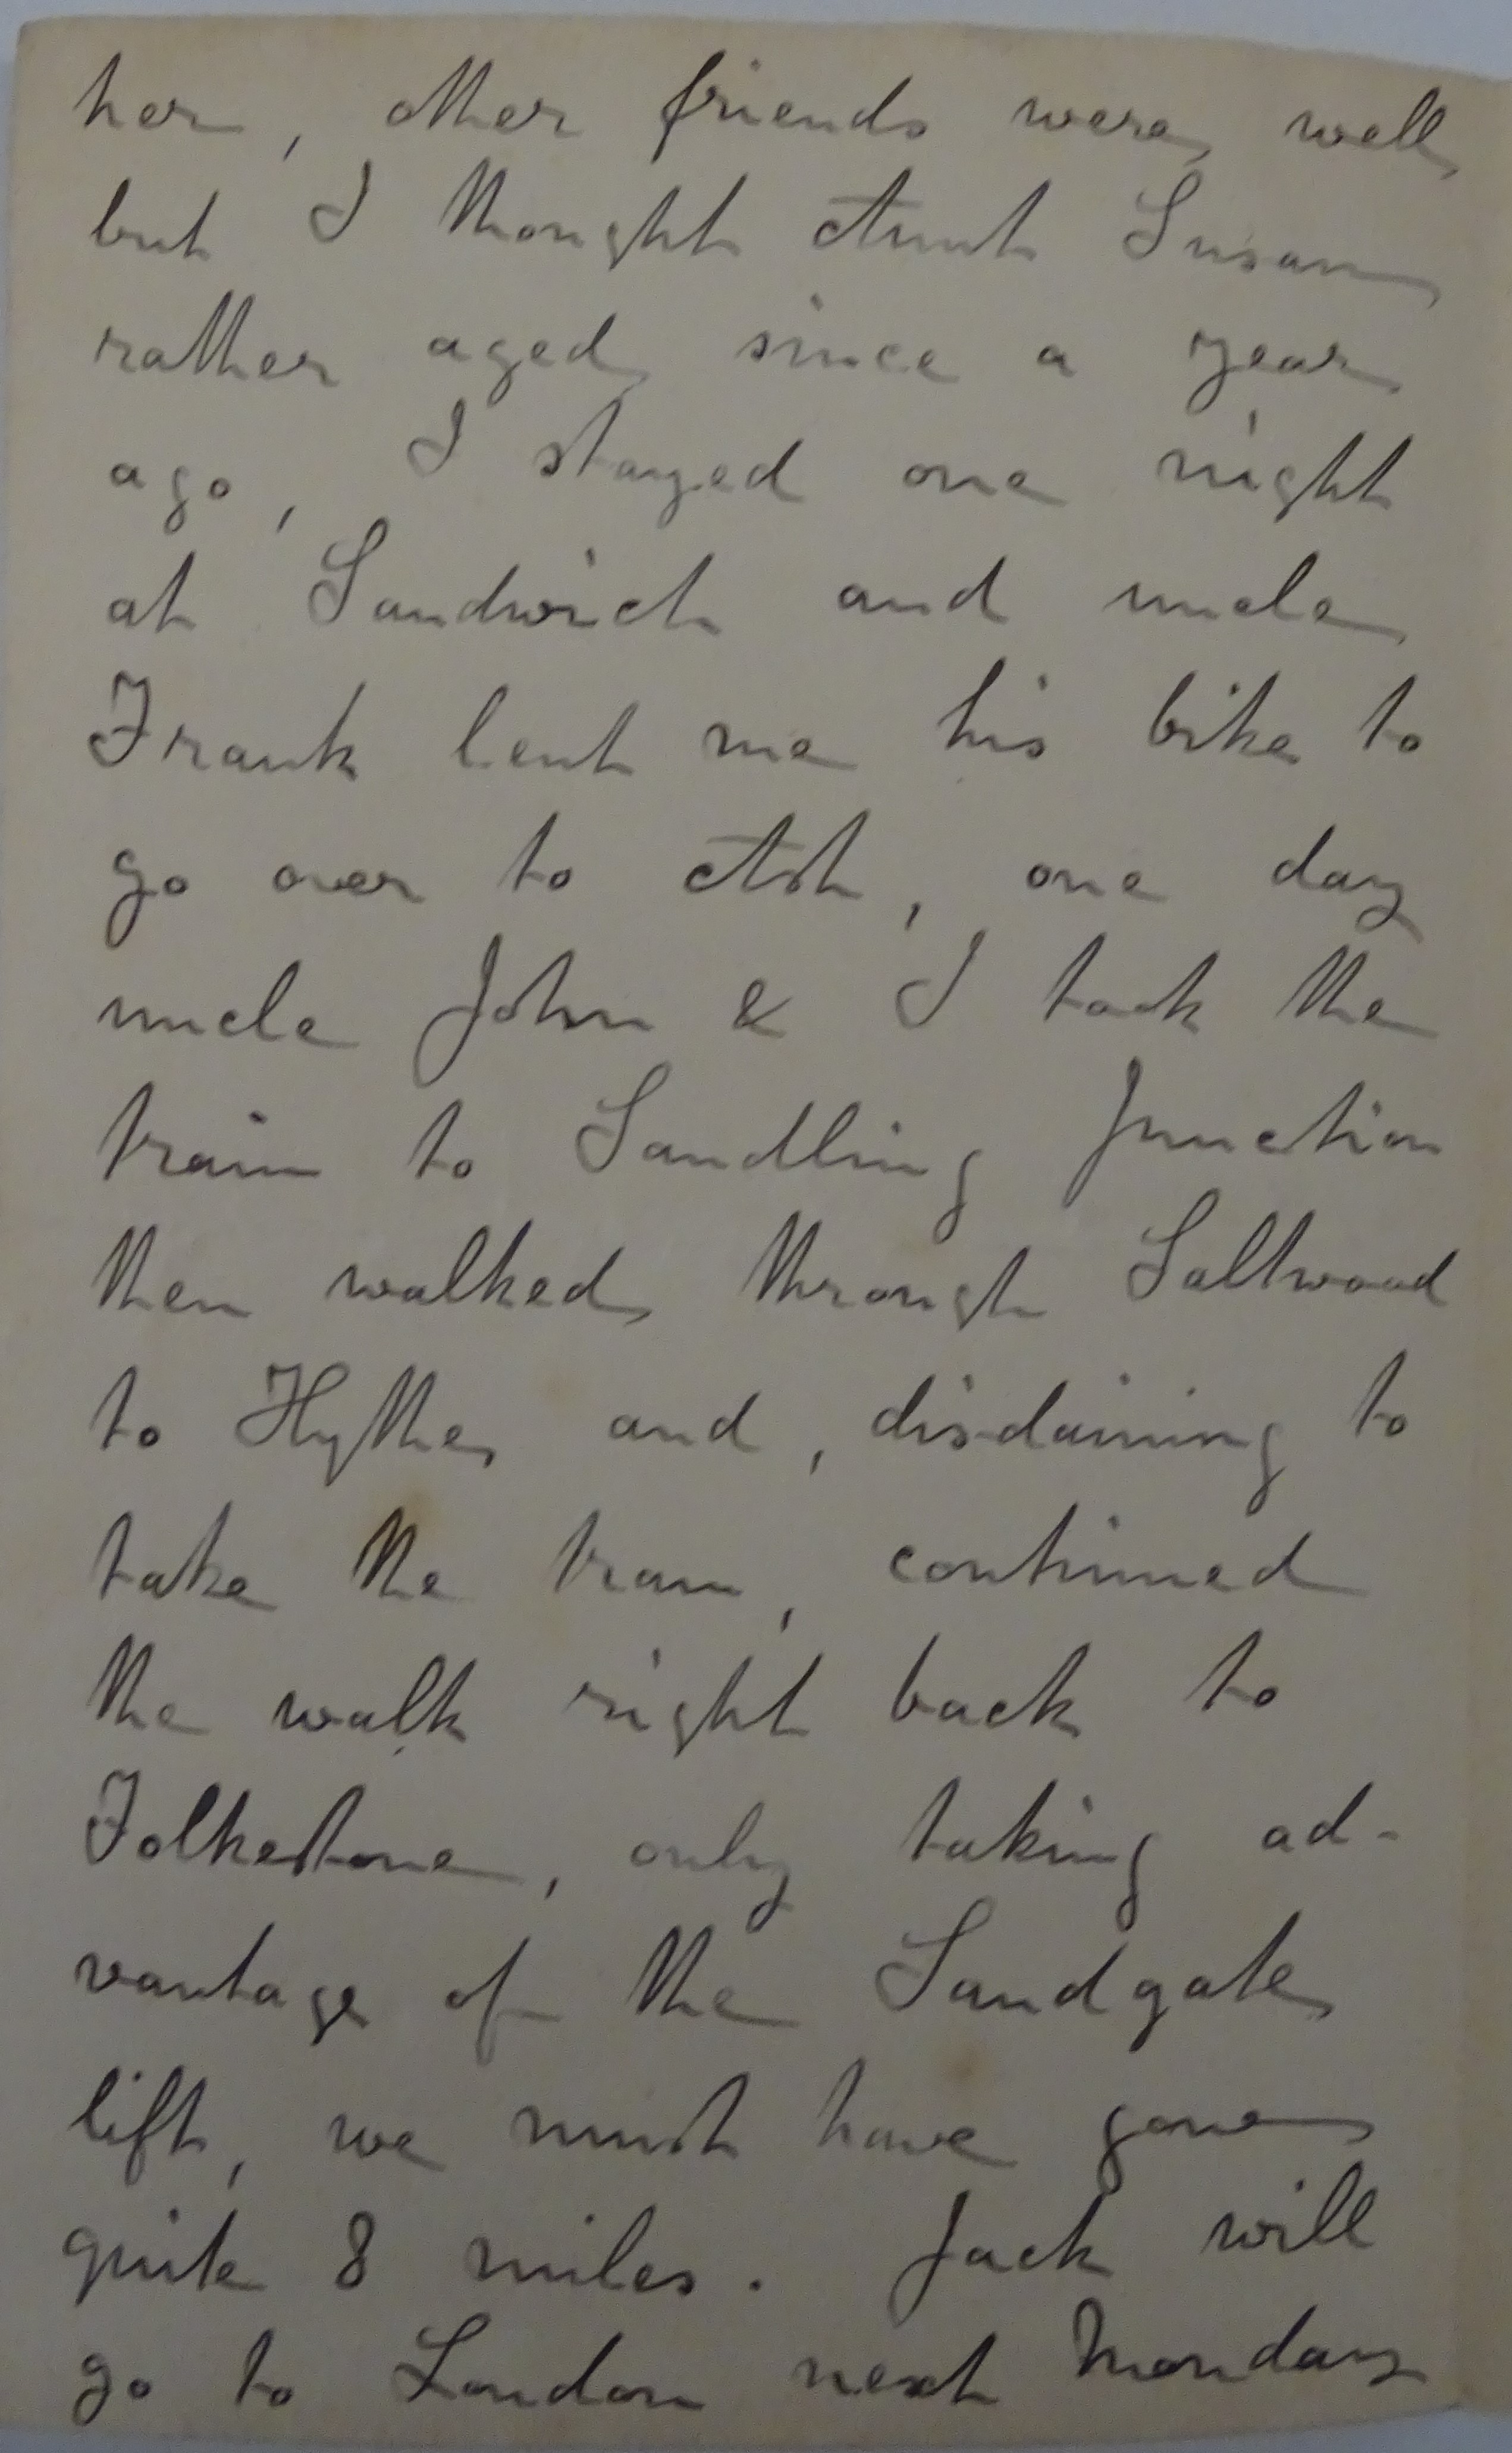 her, other friends were well
but I thought Aunt Susan
rather aged since a year
ago, I stayed one night
at Sandwich and uncle
Frank lent me his bike to
go over to Ash, one day
uncle John & I took the
train to Sandling Junction
then walked through Saltwood
to Hythe and, disdaining to
take the tram, continued
the walk right back to
Folkestone, only taking ad-
vantage of the Sandgate
lift, we must have gone
quite 8 miles. Jack will
go to London next Monday